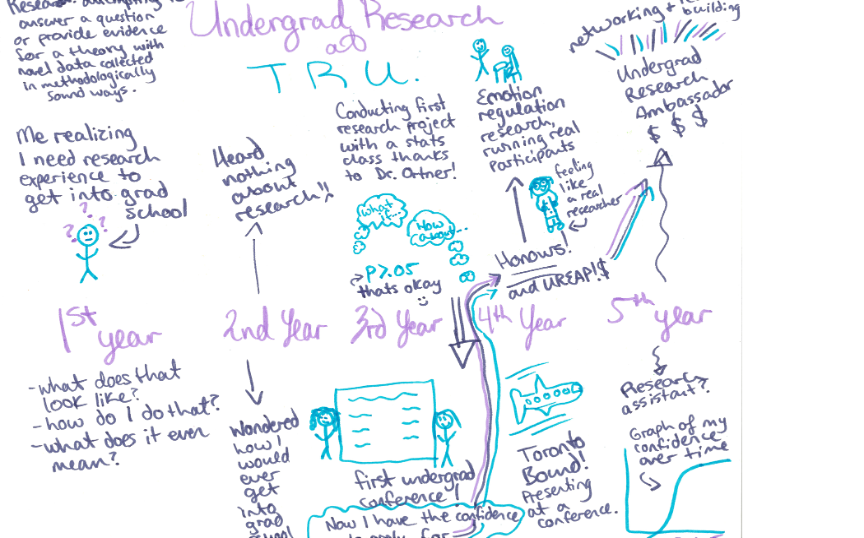 answer a question
or provide evidence
for a theory with
novel data collected
in methodologically
sound ways.
Undergrad Research
at
TRU.
networking +
building
Undergrad
Research
Ambassador
$ $ $
Me realizing
I need research
experience to
get into grad
school
? ? ? ?
Heard
nothing
about
research!!
Conducting first
research project
with a stats
class thanks
to Dr. Ortner!
what
if...
How
about...
P>.05
thats okay
Emotion
regulation
research,
running real
participants
feeling
like
a real
researcher
Honours!
and UREAP!$
1st
year
2nd Year
3rd Year
4th Year
5th year
- what does that
look like?
- how do I do that?
- what does it even
mean?
Wondered
how I
would
ever
get
into
grad
first undergrad
conference!
Now I have the confidence
Toronto
Bound!
Presenting
at a
conference.
Research
assistant?
Graph of my
confidence
over time